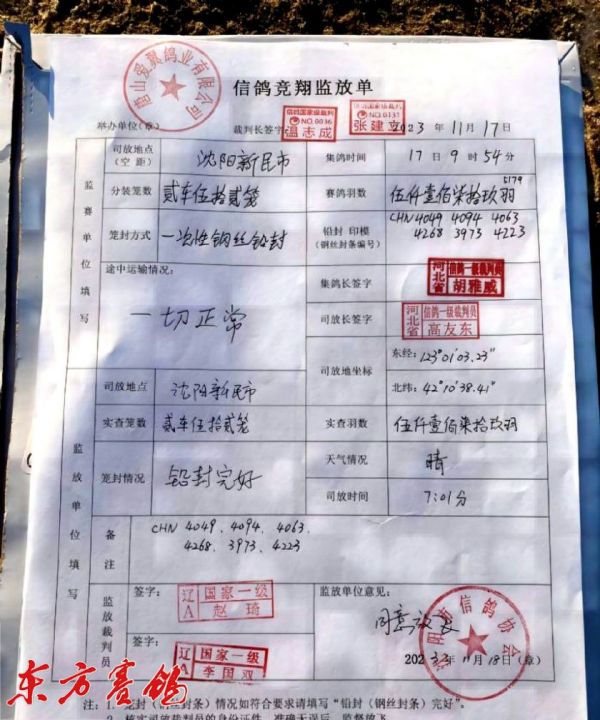 信鸽竞翔监放单
唐山爱翼鸽业有限公司
举办单位(章) 裁判长签字 信鸽国家级裁判 NO.0036 温志成 信鸽国家级裁判 NO.0131 张建立 2023年11月17日
监赛单位填写
司放地点(空距) 沈阳新民市 集鸽时间 17日9时54分
分装笼数 贰车伍拾贰笼 赛鸽羽数 伍仟壹佰柒拾玖羽 5179
笼封方式 一次性钢丝铅封 铅封 印模(钢丝封条编号) CHN 4049 4094 4063
4268 3973 4223
途中运输情况: 一切正常
集鸽长签字 河北省 信鸽一级裁判员 胡雅威
司放长签字 河北省 信鸽一级裁判员 高友东
司放地坐标 东经:123°01'03.23"
北纬:42°10'38.41"
监放单位填写
司放地点 沈阳新民市
实查笼数 贰车伍拾贰笼 实查羽数 伍仟壹佰柒拾玖羽
笼封情况 铅封完好 天气情况 晴
司放时间 7:01分
备注 CHN 4049、4094、4063、
4268、3973、4223
监放裁判员 签字: 辽A 国家一级 赵琦
签字: 辽A 国家一级 李国双
监放单位意见:
同意放飞
信鸽协会
2023年11月18日(章)
东方赛鸽
注:1. 笼封(钢丝封条)情况如符合要求请填写“铅封(钢丝封条)完好”。
2. 核实司放裁判员的身份证件,准确无误后,监督放飞